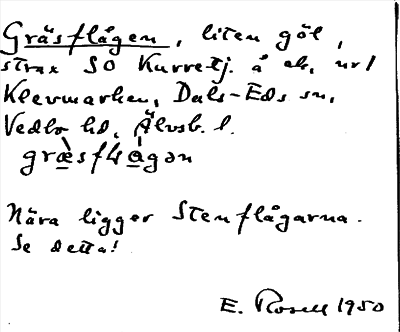 Gräsflågen, liten göl,
strax SO Kurretj. å ek.
Klevmarken, Dals-Eds sn,
Vedbo hd, Älvsb. l.
Nära ligger Stenflågarna.
Se detta!
E. Rosell 1950